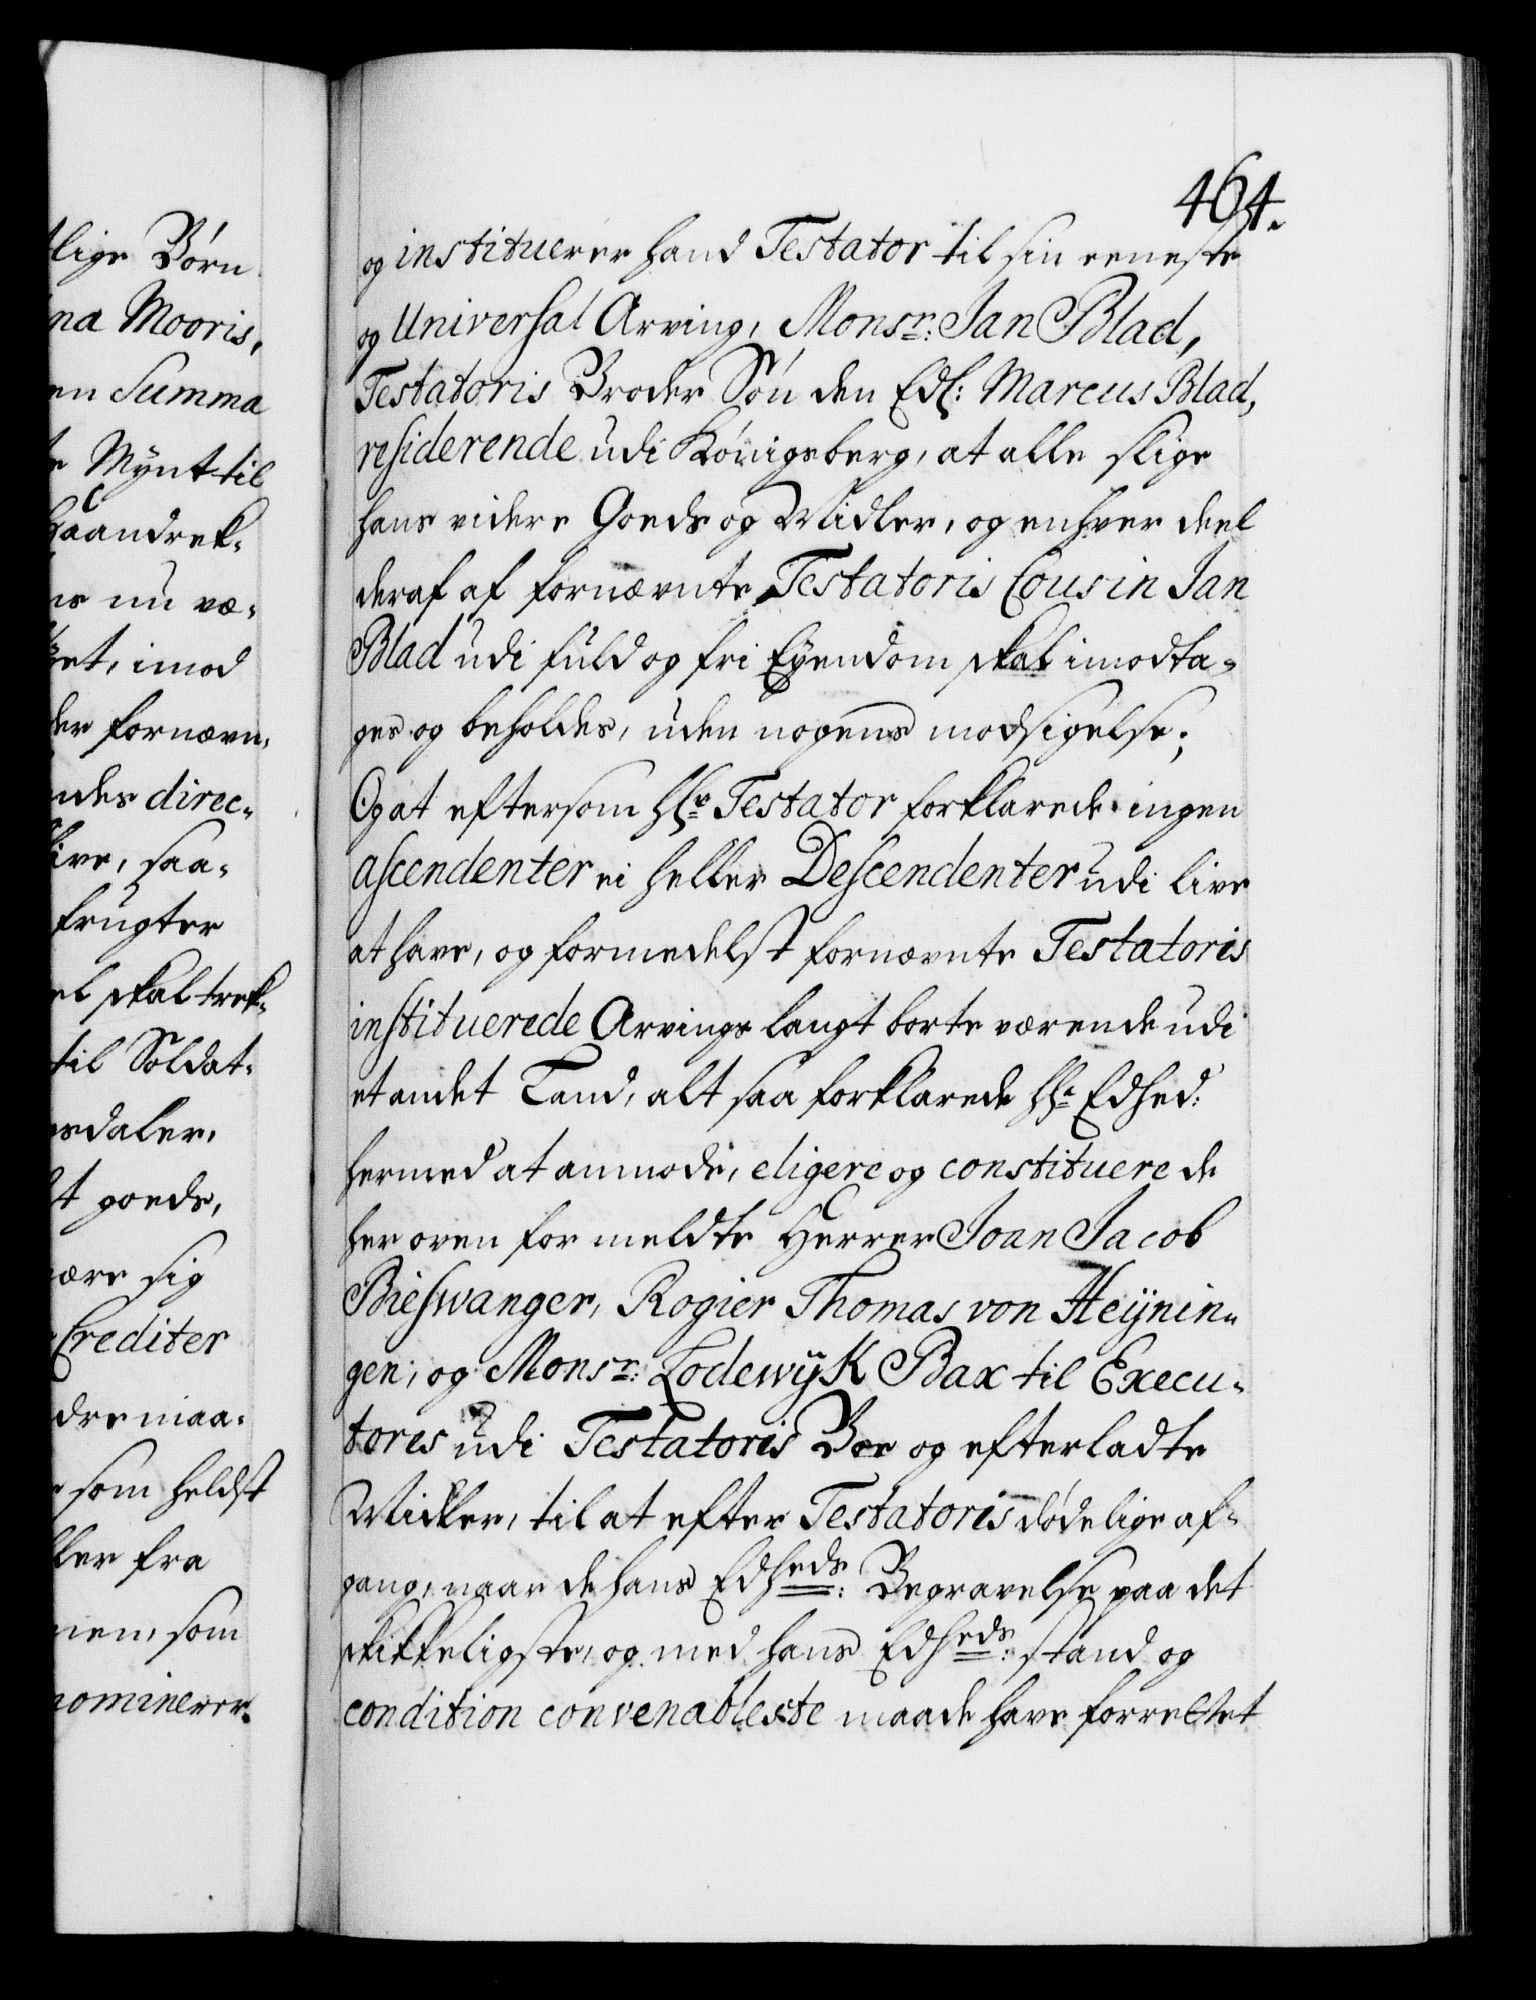 tlige Børn
na Mooris,
en Summa
te Mynt til
haandrek-
ns nu væ-
get, imod
der fornævn-
ndes direc-
live, saa-
frugter
el skal trek-
til Soldat-
sdaler,
t goeds,
være sig
Crediter
dre maa-
som heldst
ller fra
nem, som
nominerer.
464.
og instituerer hand Testator til sin eeneste
og Universal Arving, Monsr: Jan Blad,
Testatoris Broder Søn den Edl: Marcus Blad,
residerende udi Königsberg, at alle slige
hans videre Goeds og Midler, og enhver deel
deraf af fornævnte Testatoris Cousin Jan
Blad udi fuld og fri Eyendom skal imodta-
ges og beholdes, uden nogens modsigelse;
Og at eftersom Hr Testator forklarede ingen
ascendenter ei heller Descendenter udi live
at have, og formedelst fornævnte Testatoris
instituerede Arvings langt borte værende udi
et andet Land, alt saa forklarede Hr Edhed:
hermed at anmode, eligere og constituere de
her oven for meldte Herrer Joan Jacob
Bieswanger, Rogier Thomas von Heijnin-
gen, og Monsr: Lodewyk Bax til Execu-
tores udi Testatoris Boe og efterladte
Midler, til at efter Testatoris dødelige af-
gang, naar de hans Edheds: Begravelse paa det
skikkeligste, og med hans Edheds: stand og
condition convenableste maade have forrettet